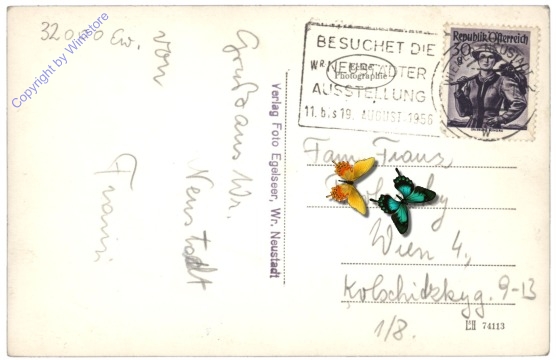 32000 Ew.
Copyright by Winstore
Gruß aus Wr.
Neustadt
von
Franzi
Verlag Foto Egelseer, Wr. Neustadt
BESUCHET DIE
WR. NEUSTÄDTER
AUSSTELLUNG
11. bis 19. AUGUST 1956
Echte
Photographie
Republik Österreich
30 g
Fam. Franz
Wien 4,
Kolschitzkyg. 9-13
1/8.
74113